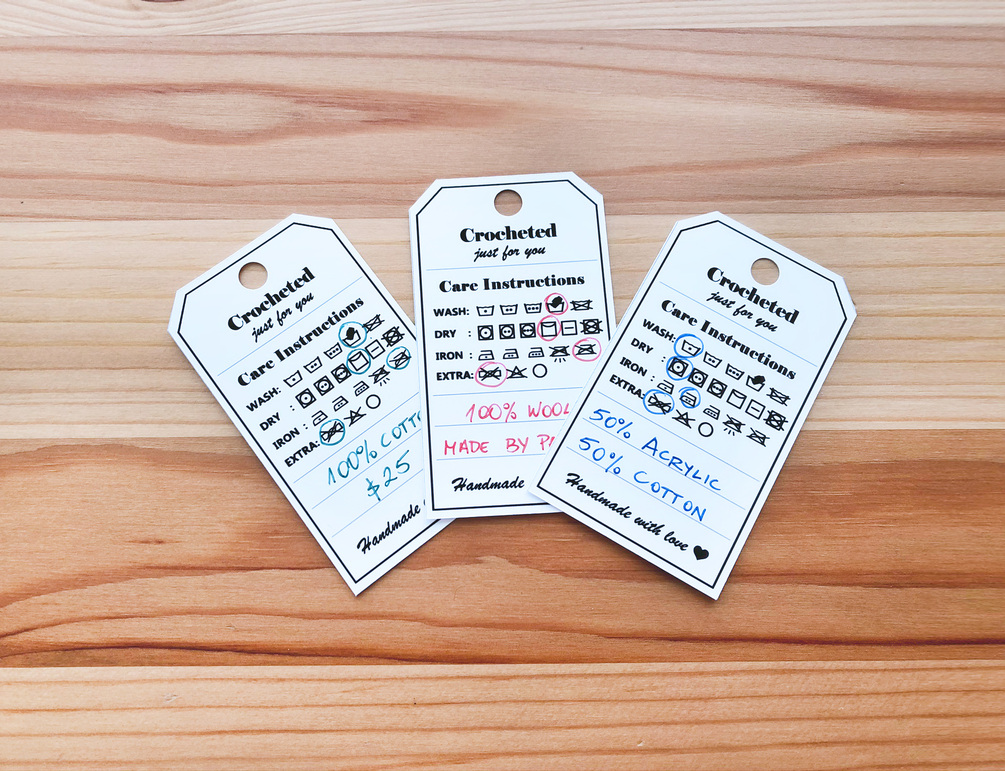 Crocheted
just for you
Care Instructions
WASH:
DRY :
IRON :
EXTRA:
100% COTT
$25
Handmade
Crocheted
just for you
Care Instructions
WASH:
DRY :
IRON :
EXTRA:
100% WOOL
MADE BY
Handmade
Crocheted
just for you
Care Instructions
WASH:
DRY :
IRON :
EXTRA:
50% ACRYLIC
50% COTTON
Handmade with love